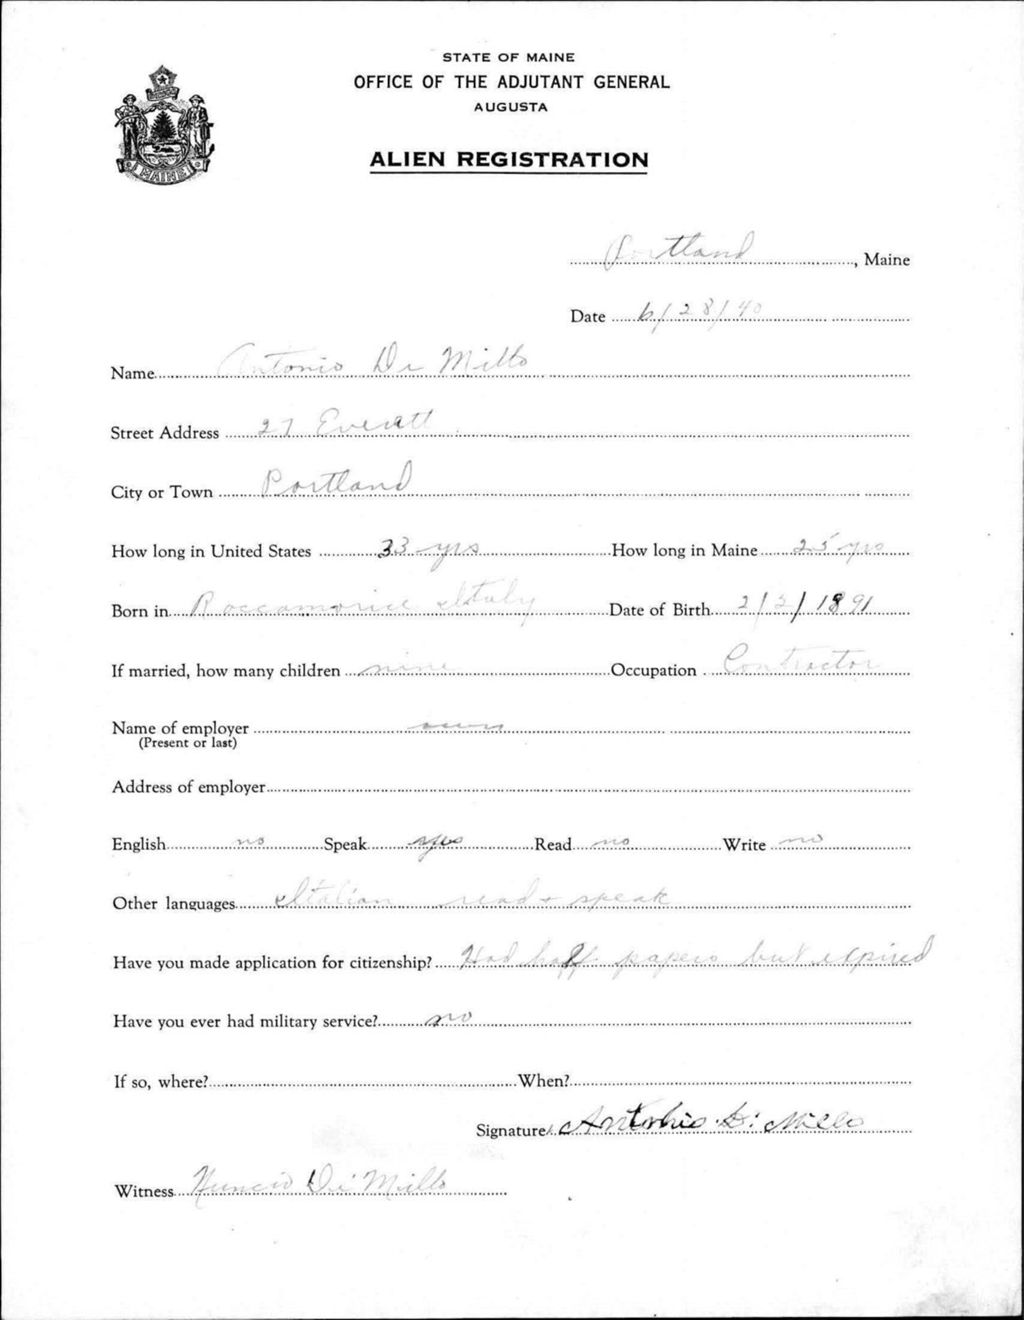 STATE OF MAINE
OFFICE OF THE ADJUTANT GENERAL
AUGUSTA
ALIEN REGISTRATION
MAINE
Portland, Maine
Date 6/28/40
Name Antonio Di Millo
Street Address 27 Everett
City or Town Portland
How long in United States 33 yrs How long in Maine 25 yrs
Born in Roccamorice Italy Date of Birth 2/2/1891
If married, how many children nine Occupation Contractor
Name of employer own
(Present or last)
Address of employer
English no Speak yes Read no Write no
Other languages Italian read + speak
Have you made application for citizenship? Had half papers but expired
Have you ever had military service? no
If so, where? When?
Signature Antonio Di Millo
Witness Nuncio Di Millo